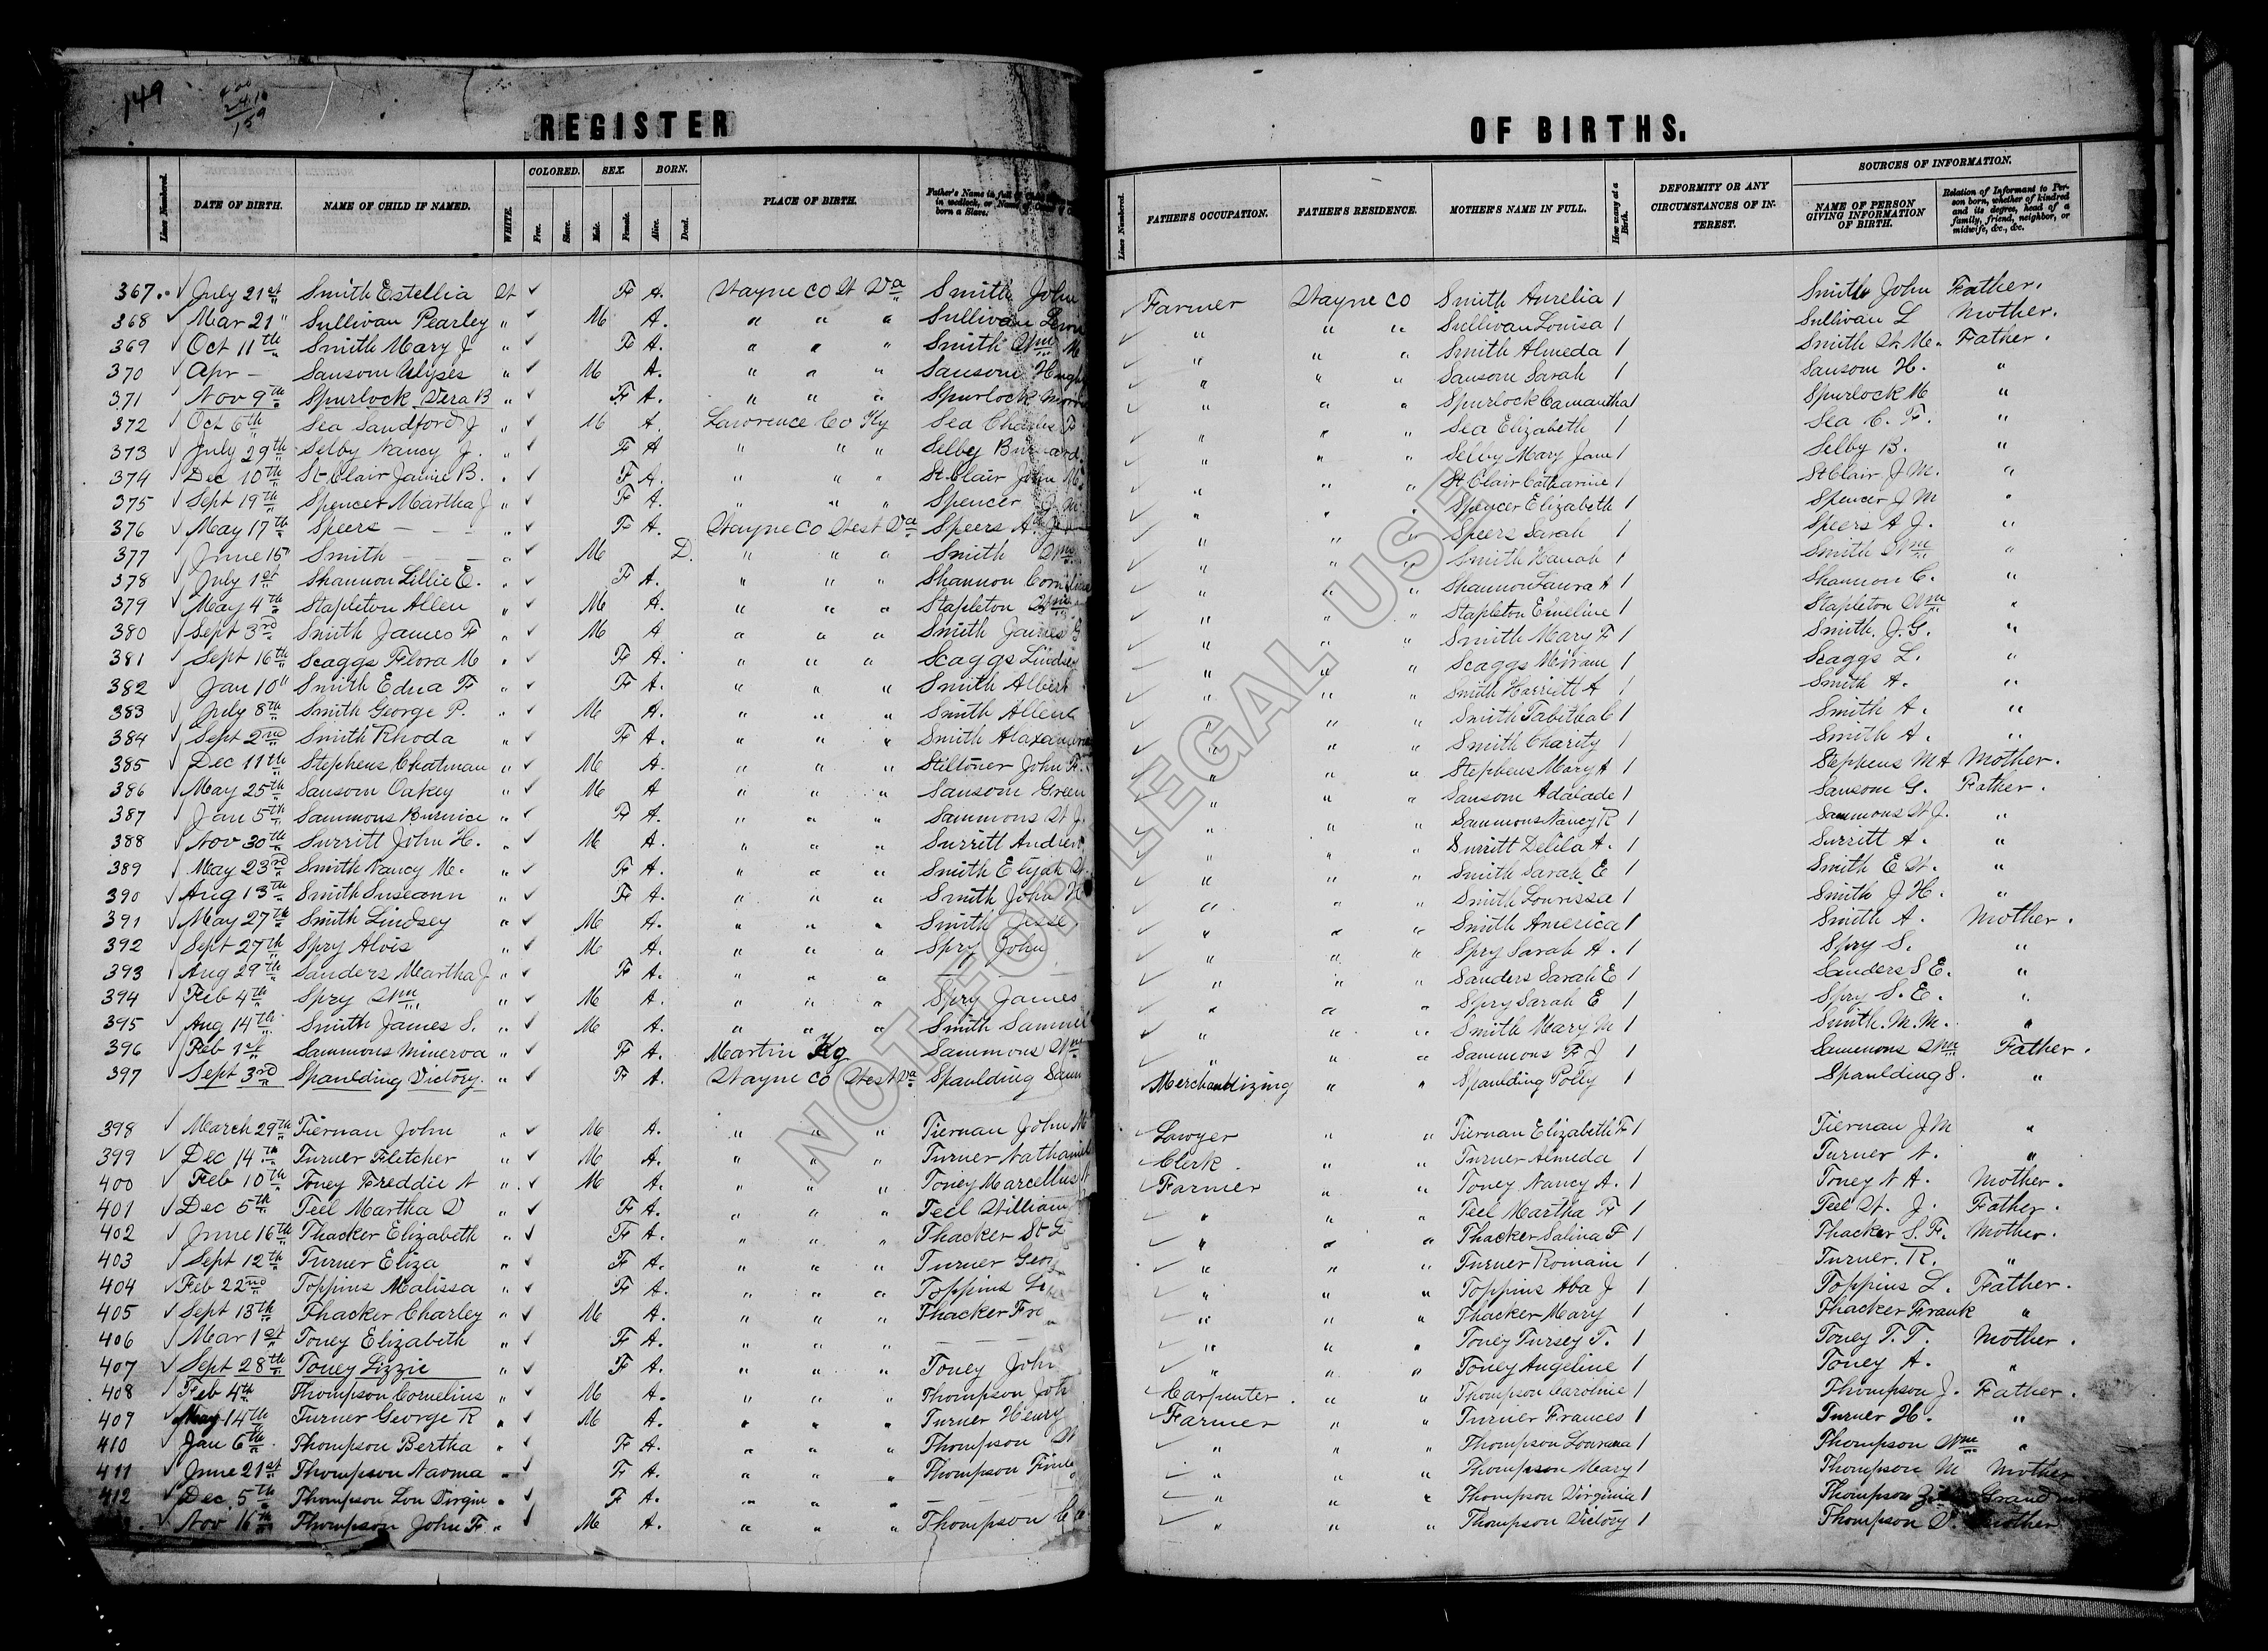 149
400
241
159
REGISTER OF BIRTHS.
Lines Numbered. DATE OF BIRTH. NAME OF CHILD IF NAMED. WHITE. COLORED. Free. Slave. SEX. Male. Female. BORN. Alive. Dead. PLACE OF BIRTH. Father's Name in full if in wedlock, or Name of born a Slave. Lines Numbered. FATHER'S OCCUPATION. FATHER'S RESIDENCE. MOTHER'S NAME IN FULL. How many at a Birth. DEFORMITY OR ANY CIRCUMSTANCES OF INTEREST. SOURCES OF INFORMATION. NAME OF PERSON GIVING INFORMATION OF BIRTH. Relation of Informant to Person born, whether of kindred and its degree, head of a family, friend, neighbor, or midwife, &c., &c.
367 ✓ July 21st Smith Estellia W ✓ F A. Wayne Co W Va Smith John Farmer Wayne Co Smith Aurelia 1 Smith John Father.
368 ✓ Mar 21 " Sullivan Pearley " ✓ M A. " " " Sullivan ✓ " " " Sullivan Louisa 1 Sullivan L Mother.
369 ✓ Oct 11th Smith Mary J " ✓ F A. " " " Smith Wm M ✓ " " " Smith Almeda 1 Smith W M. Father.
370 ✓ Apr – Sansom Ulyses " ✓ M A. " " " Sansom Hugh ✓ " " " Sansom Sarah 1 Sansom H. "
371 ✓ Nov 9th Spurlock Vera B " ✓ F A. " " " Spurlock ✓ " " " Spurlock Camantha 1 Spurlock M "
372 ✓ Oct 6th Sea Sandford J " ✓ M A. Lawrence Co Ky Sea Charles F ✓ " " " Sea Elizabeth 1 Sea C. F. "
373 ✓ July 29th Selby Nancy J. " ✓ F A " " " Selby Burnard ✓ " " " Selby Mary Jane 1 Selby B. "
374 ✓ Dec 10th St Clair Janie B. " ✓ F A. " " " St Clair John M. ✓ " " " St Clair Catharine 1 St Clair J M. "
375 ✓ Sept 19th Spencer Martha J " ✓ F A. " " " Spencer J. M. ✓ " " " Spencer Elizabeth 1 Spencer J M "
376 ✓ May 17th Speers – – – " ✓ F A. Wayne Co West Va Speers A. J. ✓ " " " Speers Sarah 1 Speers A J. "
377 ✓ June 15 " Smith – – – " ✓ M D. " " " Smith Wm ✓ " " " Smith Hanah 1 Smith Wm "
378 ✓ July 1st Shannon Lillie E. " ✓ F A. " " " Shannon Cornelius ✓ " " " Shannon Laura A 1 Shannon C. "
379 ✓ May 4th Stapleton Allen " ✓ M A. " " " Stapleton Wm ✓ " " " Stapleton Emeline 1 Stapleton Wm "
380 ✓ Sept 3rd Smith James F " ✓ M A " " " Smith James G ✓ " " " Smith Mary F 1 Smith. J. G. "
381 ✓ Sept 16th Scaggs Flora M " ✓ F A. " " " Scaggs Lindsey ✓ " " " Scaggs Miriam 1 Scaggs L. "
382 ✓ Jan 10 " Smith Edna F " ✓ F A. " " " Smith Albert ✓ " " " Smith Harriett A 1 Smith A. "
383 ✓ July 8th Smith George P. " ✓ M A. " " " Smith Allen ✓ " " " Smith Tabitha C 1 Smith A. "
384 ✓ Sept 2nd Smith Rhoda " ✓ F A. " " " Smith Alaxander ✓ " " " Smith Charity 1 Smith A. "
385 ✓ Dec 11th Stephens Chatman " ✓ M A. " " " Stiltoner John F. ✓ " " " Stephens Mary A 1 Stephens M A Mother.
386 ✓ May 25th Sansom Oakey " ✓ M A " " " Sansom Green ✓ " " " Sansom Adalade 1 Sansom G. Father.
387 ✓ Jan 5th Sammons Burnice " ✓ F A. " " " Sammons W J. ✓ " " " Sammons Nancy R 1 Sammons W J. "
388 ✓ Nov 30th Surritt John H. " ✓ M A. " " " Surritt Andrew ✓ " " " Surritt Delila A. 1 Surritt A. "
389 ✓ May 23rd Smith Nancy M. " ✓ F A. " " " Smith Elijah W. ✓ " " " Smith Sarah E 1 Smith E W. "
390 ✓ Aug 13th Smith Suseann " ✓ F A. " " " Smith John H ✓ " " " Smith Lourissa 1 Smith J H. "
391 ✓ May 27th Smith Lindsey " ✓ M A. " " " Smith Jesse. ✓ " " " Smith America 1 Smith A. Mother.
392 ✓ Sept 27th Spry Alvis " ✓ M A. " " " Spry John ✓ " " " Spry Sarah A. 1 Spry S. "
393 ✓ Aug 29th Sanders Martha J " ✓ F A. " " " – – – ✓ " " " Sanders Sarah E 1 Sanders S E. "
394 ✓ Feb 4th Spry Wm " ✓ M A. " " " Spry James ✓ " " " Spry Sarah E 1 Spry S. E. "
395 ✓ Aug 14th Smith James S. " ✓ M A. " " " Smith Samuel ✓ " " " Smith Mary M 1 Smith. M. M. "
396 ✓ Feb 1st Sammons Minerva " ✓ F A. Martin Ky Sammons Wm ✓ " " " Sammons F J 1 Sammons Wm Father.
397 ✓ Sept 3rd Spaulding Victory. " ✓ F A. Wayne Co West Va Spaulding Merchandizing " " Spaulding Polly 1 Spaulding S. "
398 ✓ March 29th Tiernan John " ✓ M A. " " " Tiernan John M Lawyer " " Tiernan Elizabeth F 1 Tiernan J M "
399 ✓ Dec 14th Turner Fletcher " ✓ M A. " " " Turner Nathaniel Clerk. " " Turner Almeda 1 Turner N. "
400 ✓ Feb 10th Toney Freddie A " ✓ M A. " " " Toney Marcellus Farmer " " Toney Nancy A. 1 Toney N A. Mother.
401 ✓ Dec 5th Teel Martha V " ✓ F A. " " " Teel William ✓ " " " Teel Martha F 1 Teel W. J. Father.
402 ✓ June 16th Thacker Elizabeth " ✓ F A. " " " Thacker ✓ " " " Thacker Salina F 1 Thacker S. F. Mother.
403 ✓ Sept 12th Turner Eliza " ✓ F A. " " " Turner ✓ " " " Turner Romain 1 Turner. R. "
404 ✓ Feb 22nd Toppins Malissa " ✓ F A. " " " Toppins ✓ " " " Toppins Aba J 1 Toppins L. Father.
405 ✓ Sept 13th Thacker Charley " ✓ M A. " " " Thacker ✓ " " " Thacker Mary 1 Thacker Frank "
406 ✓ Mar 1st Toney Elizabeth " ✓ F A. " " " – – – ✓ " " " Toney Tursey T. 1 Toney T. T. Mother.
407 ✓ Sept 28th Toney Lizzie " ✓ F A. " " " Toney John ✓ " " " Toney Angeline 1 Toney A. "
408 ✓ Feb 4th Thompson Cornelius " ✓ M A. " " " Thompson Carpenter. " " Thompson Caroline 1 Thompson J. Father.
409 ✓ May 14th Turner George R " ✓ M A. " " " Turner Henry Farmer " " Turner Frances 1 Turner H. "
410 ✓ Jan 6th Thompson Bertha " ✓ F A. " " " Thompson ✓ " " " Thompson 1 Thompson Wm "
411 ✓ June 21st Thompson Naoma " ✓ F A. " " " Thompson ✓ " " " Thompson Mary 1 Thompson M Mother
412 ✓ Dec 5th Thompson Lou Virgin " ✓ F A. " " " – – – ✓ " " " Thompson Virginia 1 Thompson
✓ Nov 16th Thompson John F " ✓ M A. " " " Thompson ✓ " " " Thompson Victory 1 Thompson V. Mother
NOT FOR LEGAL USE